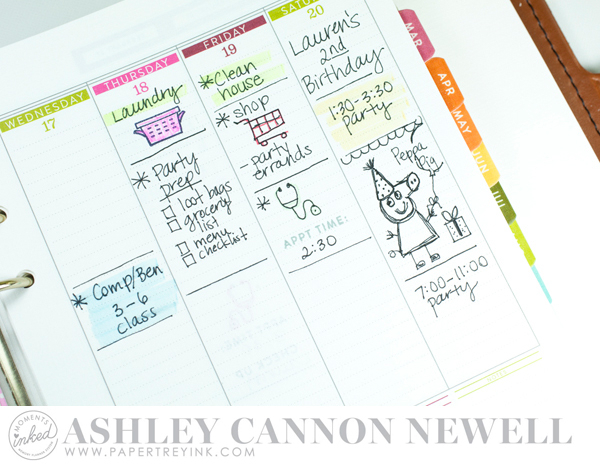 WEDNESDAY
17
* Comp/Ben
3-6
class
THURSDAY
18
Laundry
* Party
prep
loot bags
grocery
list
menu
checklist
FRIDAY
19
* Clean
house
* shop
- party
errands
*
APPT TIME:
2:30
20
Lauren's
2nd
Birthday
1:30-3:30
party
Peppa
Pig
7:00-11:00
party
MAR
APR
MAY
JUN
JUL
MOMENTS
inked
ASHLEY CANNON NEWELL
WWW.PAPERTREYINK.COM